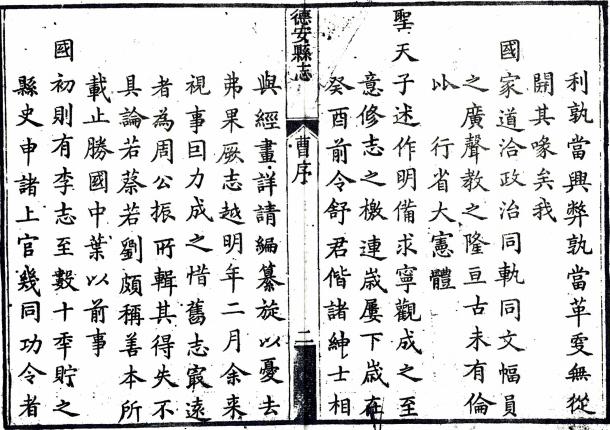 利孰當興弊孰當革更無從
開其喙矣我
國家道洽政治同軌同文幅員
之廣聲教之隆亘古未有倫
比 行省大憲體
聖天子述作明備求寧觀成之至
意修志之檄連歲屢下歲在
癸酉前令舒君偕諸紳士相
德安縣志
曹序
二
與經畫詳請編纂旋以憂去
弗果厥志越明年二月余來
視事回力成之惜舊志㝡遠
者為周公振所輯其得失不
具論若蔡若劉頗稱善本所
載止勝國中葉以前事
國初則有李志至數十年貯之
縣史申諸上官幾同功令者